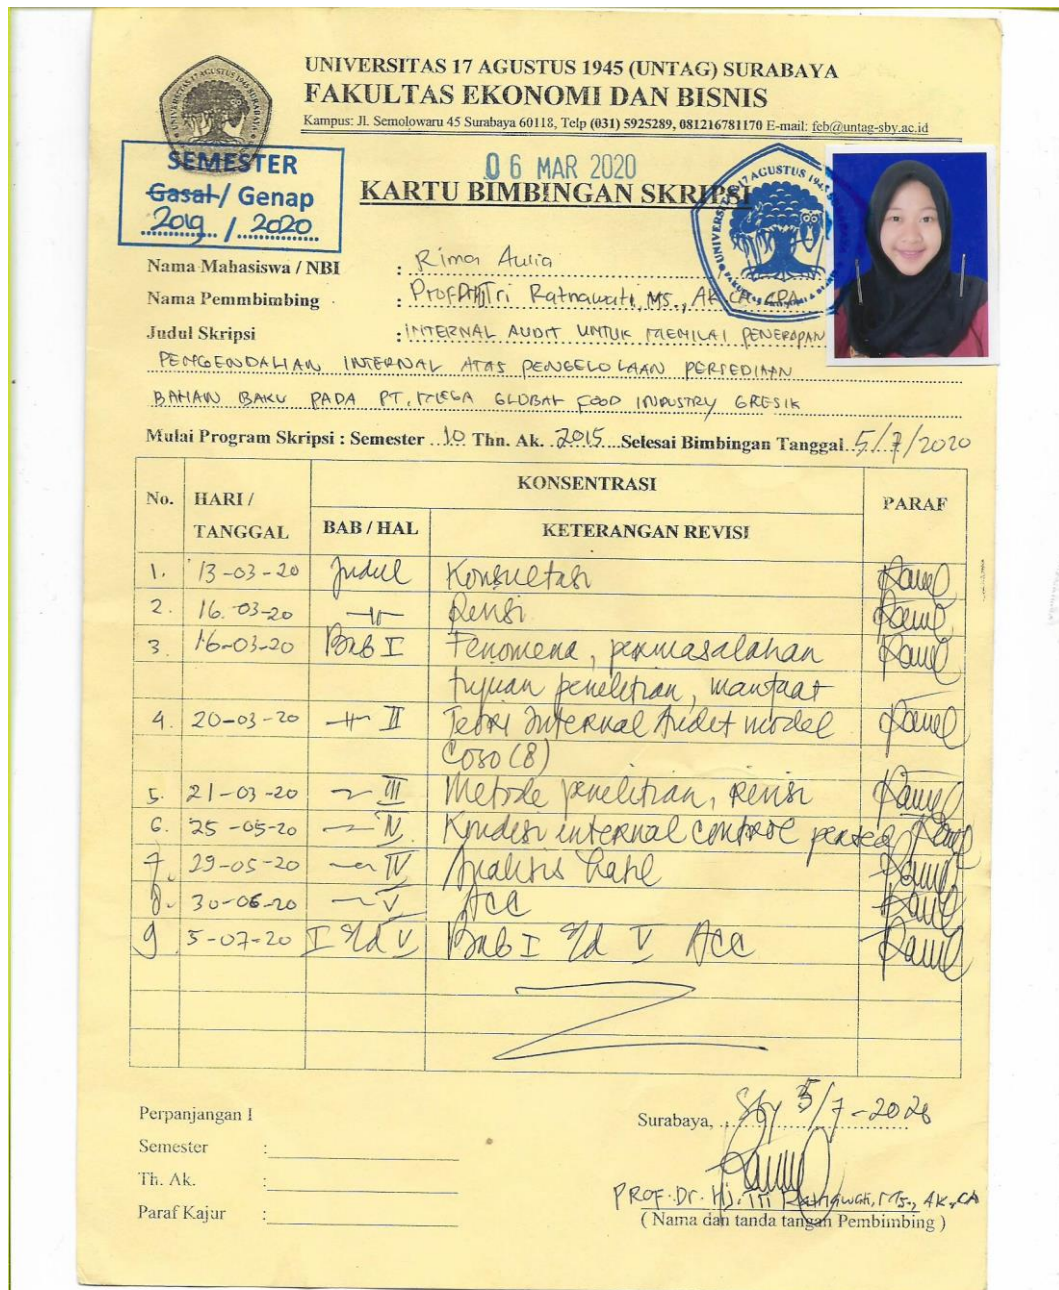 UNIVERSITAS 17 AGUSTUS 1945 (UNTAG) SURABAYA
FAKULTAS EKONOMI DAN BISNIS
Kampus: Jl. Semolowaru 45 Surabaya 60118, Telp (031) 5925289, 081216781170 E-mail: feb@untag-sby.ac.id
SEMESTER
Gasal / Genap
2019 / 2020
06 MAR 2020
KARTU BIMBINGAN SKRIPSI
Nama Mahasiswa / NBI : Rima Aulia
Nama Pemmbimbing : Prof Tri Ratnawati, MS., AK, CA, CPA
Judul Skripsi : INTERNAL AUDIT UNTUK MENILAI PENERAPAN
PENGENDALIAN INTERNAL ATAS PENGELOLAAN PERSEDIAAN
BAHAN BAKU PADA PT. MEGA GLOBAL FOOD INDUSTRY GRESIK
Mulai Program Skripsi : Semester 10 Thn. Ak. 2015 Selesai Bimbingan Tanggal 5/7/2020
No. HARI / TANGGAL KONSENTRASI PARAF
BAB / HAL KETERANGAN REVISI
1. 13-03-20 Judul Konsultasi
2. 16-03-20 -11- Revisi
3. 16-03-20 Bab I Fenomena, permasalahan
tujuan penelitian, manfaat
4. 20-03-20 -11- II Teori Internal Audit model
Coso (8)
5. 21-03-20 III Metode penelitian, Revisi
6. 25-05-20 IV Kondisi internal control
7. 29-05-20 IV Analisis hasil
8. 30-06-20 V Acc
9 5-07-20 I s/d V Bab I s/d V Acc
Perpanjangan I
Semester :
Th. Ak. :
Paraf Kajur :
Surabaya, Sby 5/7-2020
PROF. Dr. Hj. Tri Ratnawati, MS., AK, CA
( Nama dan tanda tangan Pembimbing )